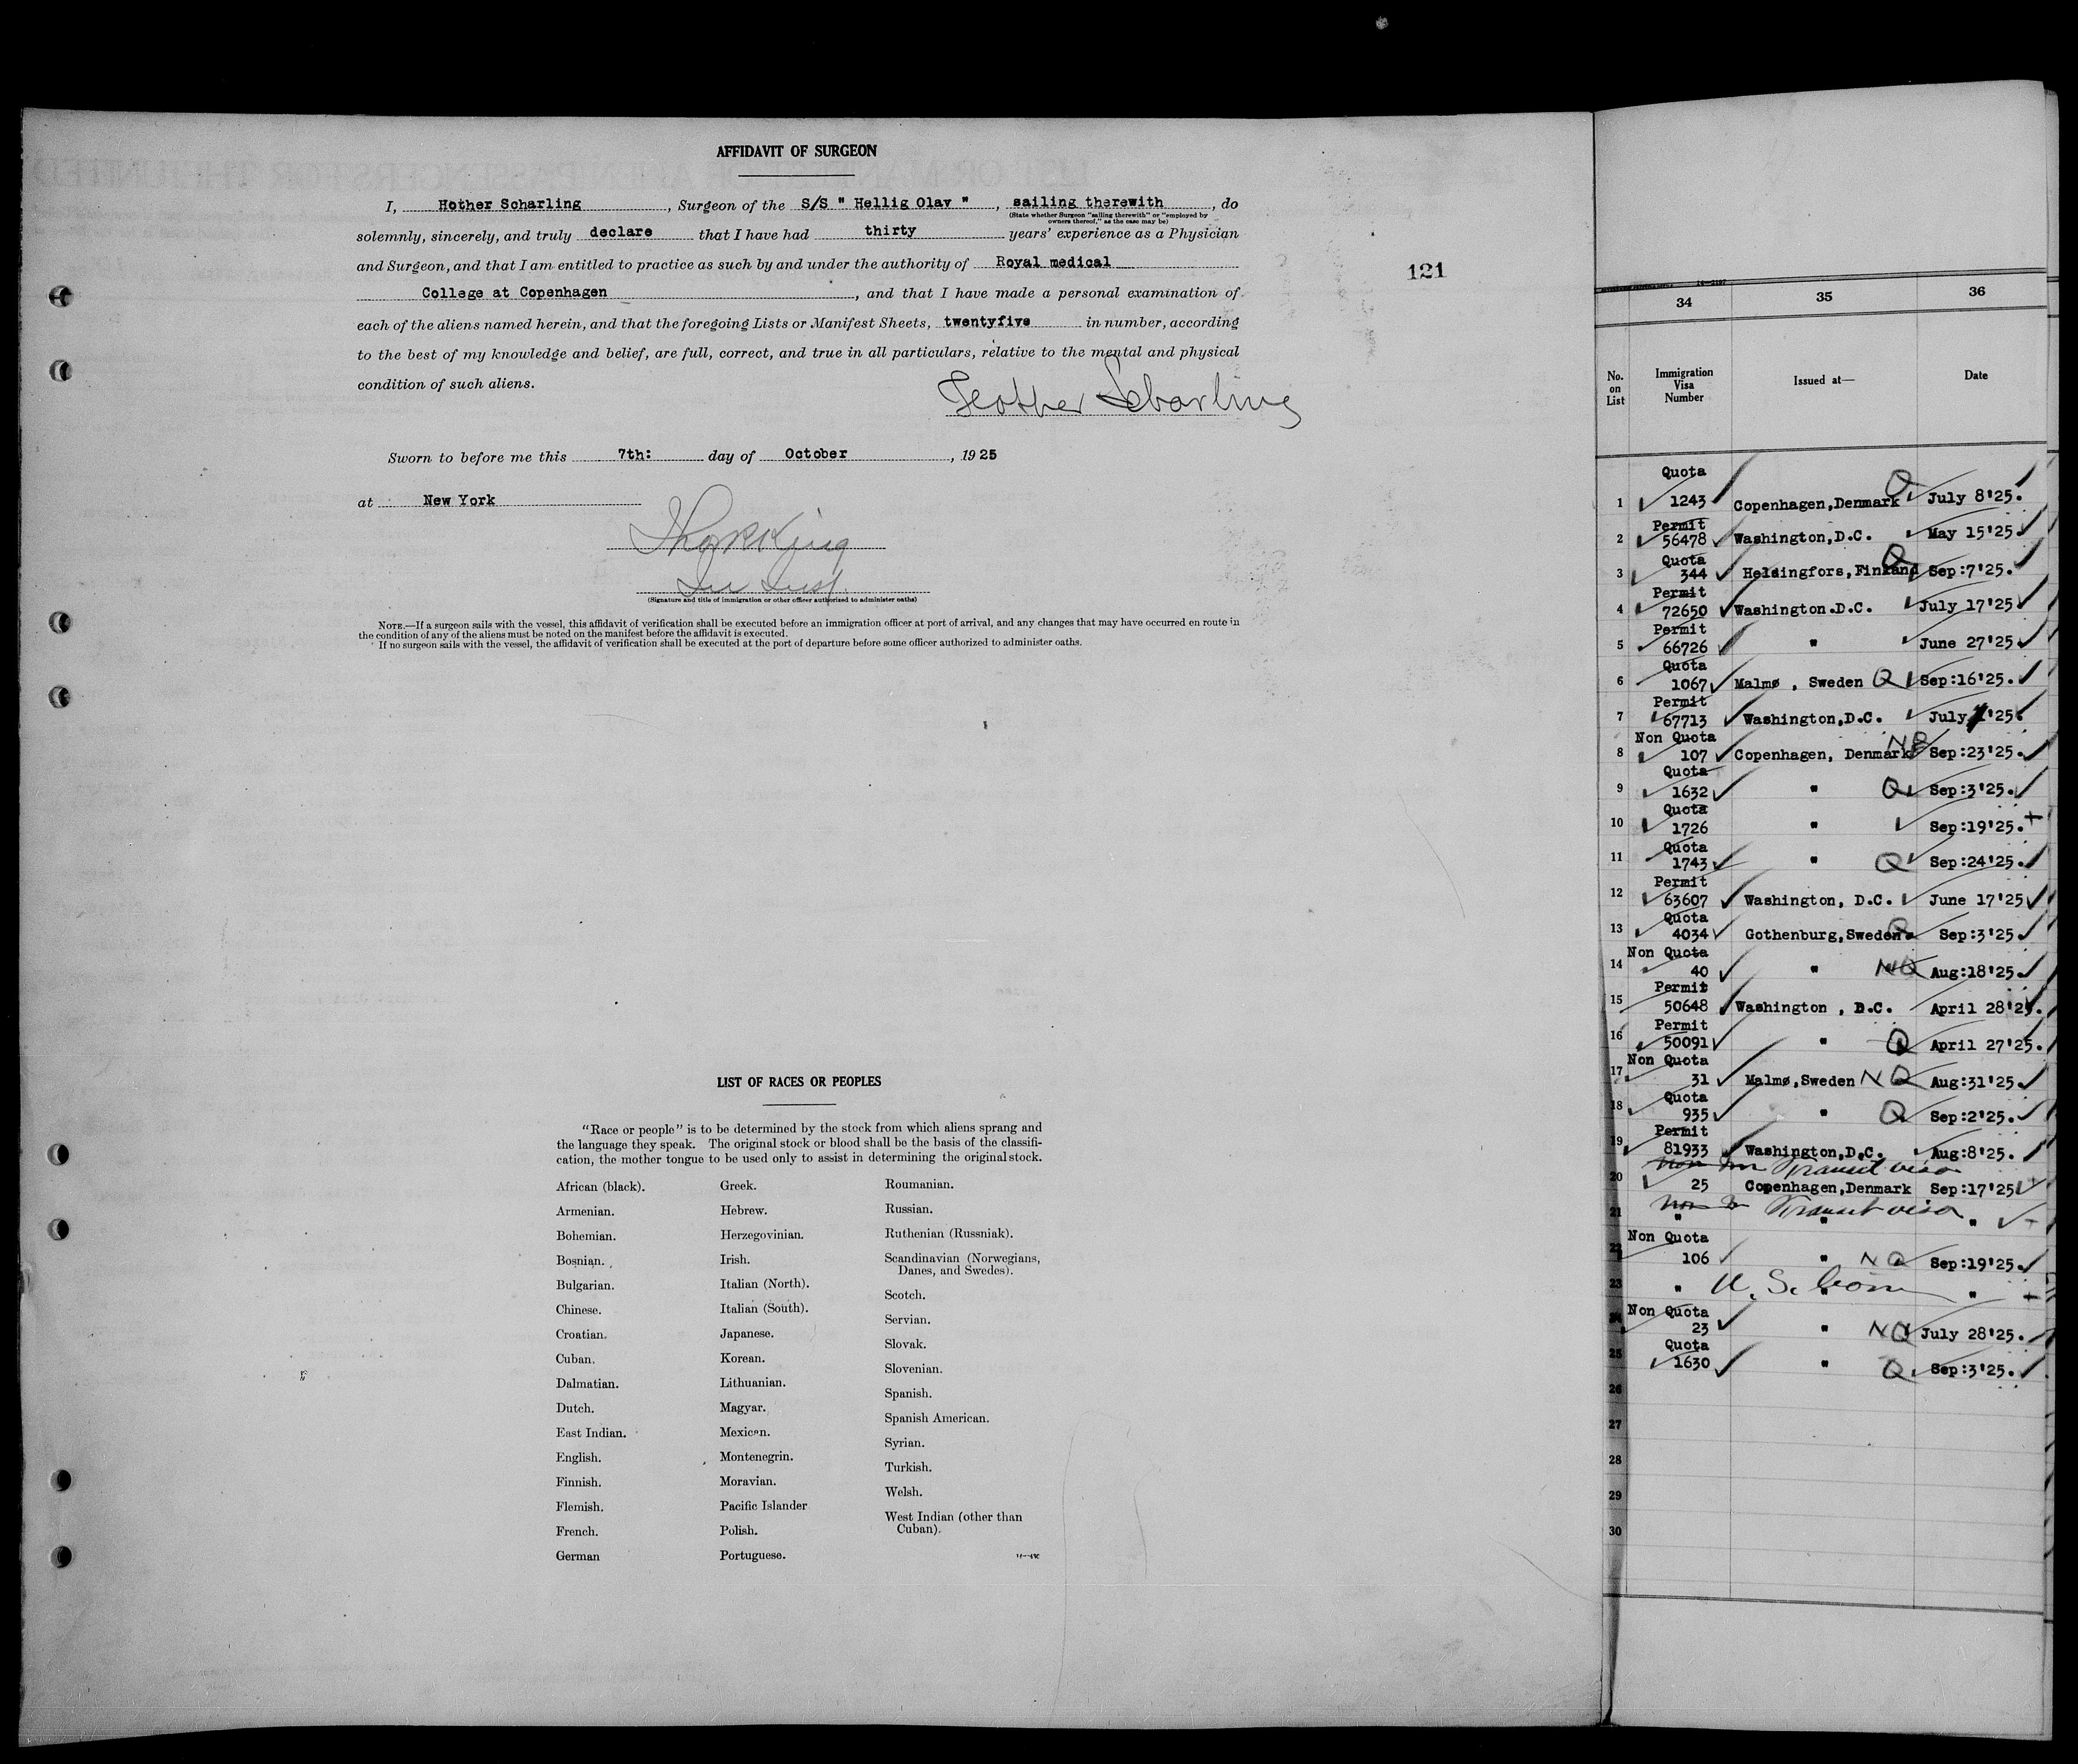 AFFIDAVIT OF SURGEON
I, Hother Scharling, Surgeon of the S/S " Hellig Olav ", sailing therewith, do
(State whether Surgeon "sailing therewith" or "employed by
owners thereof," as the case may be)
solemnly, sincerely, and truly declare that I have had thirty years' experience as a Physician
and Surgeon, and that I am entitled to practice as such by and under the authority of Royal medical
College at Copenhagen, and that I have made a personal examination of
each of the aliens named herein, and that the foregoing Lists or Manifest Sheets, twentyfive in number, according
to the best of my knowledge and belief, are full, correct, and true in all particulars, relative to the mental and physical
condition of such aliens.
Hother Scharling
Sworn to before me this 7th: day of October, 1925
at New York
(Signature and title of immigration or other officer authorized to administer oaths)
NOTE.—If a surgeon sails with the vessel, this affidavit of verification shall be executed before an immigration officer at port of arrival, and any changes that may have occurred en route in
the condition of any of the aliens must be noted on the manifest before the affidavit is executed.
If no surgeon sails with the vessel, the affidavit of verification shall be executed at the port of departure before some officer authorized to administer oaths.
121
LIST OF RACES OR PEOPLES
"Race or people" is to be determined by the stock from which aliens sprang and
the language they speak. The original stock or blood shall be the basis of the classifi-
cation, the mother tongue to be used only to assist in determining the original stock.
African (black).
Armenian.
Bohemian.
Bosnian.
Bulgarian.
Chinese.
Croatian.
Cuban.
Dalmatian.
Dutch.
East Indian.
English.
Finnish.
Flemish.
French.
German
Greek.
Hebrew.
Herzegovinian.
Irish.
Italian (North).
Italian (South).
Japanese.
Korean.
Lithuanian.
Magyar.
Mexican.
Montenegrin.
Moravian.
Pacific Islander
Polish.
Portuguese.
Roumanian.
Russian.
Ruthenian (Russniak).
Scandinavian (Norwegians,
Danes, and Swedes).
Scotch.
Servian.
Slovak.
Slovenian.
Spanish.
Spanish American.
Syrian.
Turkish.
Welsh.
West Indian (other than
Cuban).
34 35 36
No. on List Immigration Visa Number Issued at— Date
Quota
1 1243 Copenhagen,Denmark Q July 8'25.
Permit
2 56478 Washington,D.C. May 15'25
Quota
3 344 Helsingfors, Finland Q Sep:7'25.
Permit
4 72650 Washington.D.C. July 17'25
Permit
5 66726 " June 27'25
Quota
6 1067 Malmø , Sweden Q Sep:16'25.
Permit
7 67713 Washington,D.C. July 1'25.
Non Quota
8 107 Copenhagen, Denmark NQ Sep:23'25.
Quota
9 1632 " Q Sep:3'25.
Quota
10 1726 " Sep:19'25.
Quota
11 1743 " Q Sep:24'25.
Permit
12 63607 Washington, D.C. June 17'25
Quota
13 4034 Gothenburg,Sweden Q Sep:3'25
Non Quota
14 40 " NQ Aug:18'25.
Permit
15 50648 Washington , D.C. April 28'25.
Permit
16 50091 " Q April 27'25.
Non Quota
17 31 Malmø,Sweden NQ Aug:31'25.
Quota
18 935 " Q Sep:2'25.
Permit
19 81933 Washington,D.C. Aug:8'25.
Transit visa
20 25 Copenhagen,Denmark Sep:17'25
Transit visa
21 " " "
Non Quota
22 106 " NQ Sep:19'25.
23 " U.S. born " "
Non Quota
24 23 " NQ July 28'25.
Quota
25 1630 " Q Sep:3'25.
26
27
28
29
30